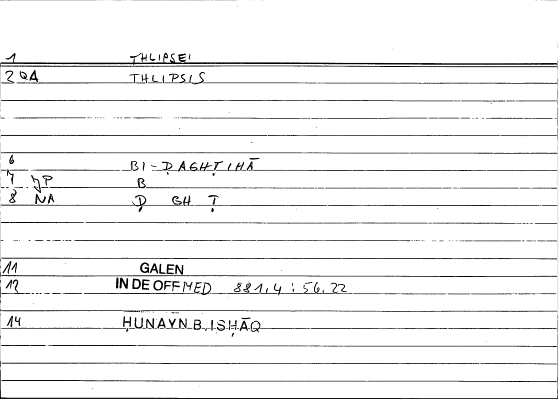 1 THLIPSEI
2 QA THLIPSIS
6 BI-ḌAGHṬIHĀ
7 JP B
8 NA Ḍ GH Ṭ
11 GALEN
12 IN DE OFF MED 881,4 : 56,22
14 ḤUNAYN B. ISḤĀQ